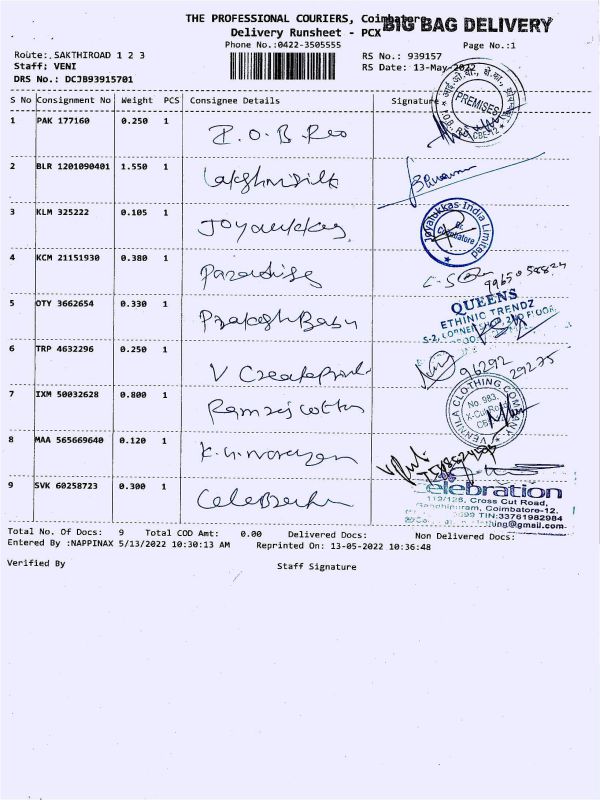 THE PROFESSIONAL COURIERS, Coimbatore
BIG BAG DELIVERY
Delivery Runsheet - PCX
Phone No.:0422-3505555
Page No.:1
Route:.SAKTHIROAD 1 2 3
Staff; VENI
DRS No.: DCJB93915701
RS No.: 939157
RS Date: 13-May-2022
S No Consignment No Weight PCS Consignee Details Signature
1 PAK 177160 0.250 1 I.O.B Reo
PREMISES
CBE-12
2 BLR 1201090401 1.550 1 Lakshmisilk
3 KLM 325222 0.105 1 Joyalukkas
Joyalukkas India Limited
Coimbatore
4 KCM 21151930 0.380 1 Paradise
5 OTY 3662654 0.330 1 PrakashBabu
QUEENS
ETHINIC TRENDZ
6 TRP 4632296 0.250 1 V Createprint
96292 29275
7 IXM 50032628 0.800 1 Ramraj cotton
VENNILA CLOTHING COMPANY
No. 983,
X-Cut Road
8 MAA 565669640 0.120 1 K.N.Narayan
9 SVK 60258723 0.300 1 Celebration
Celebration
112/126, Cross Cut Road,
Gandhipuram, Coimbatore-12.
TIN:33761982984
Total No. Of Docs: 9 Total COD Amt: 0.00 Delivered Docs: Non Delivered Docs:
Entered By :NAPPINAX 5/13/2022 10:30:13 AM Reprinted On: 13-05-2022 10:36:48
Verified By
Staff Signature